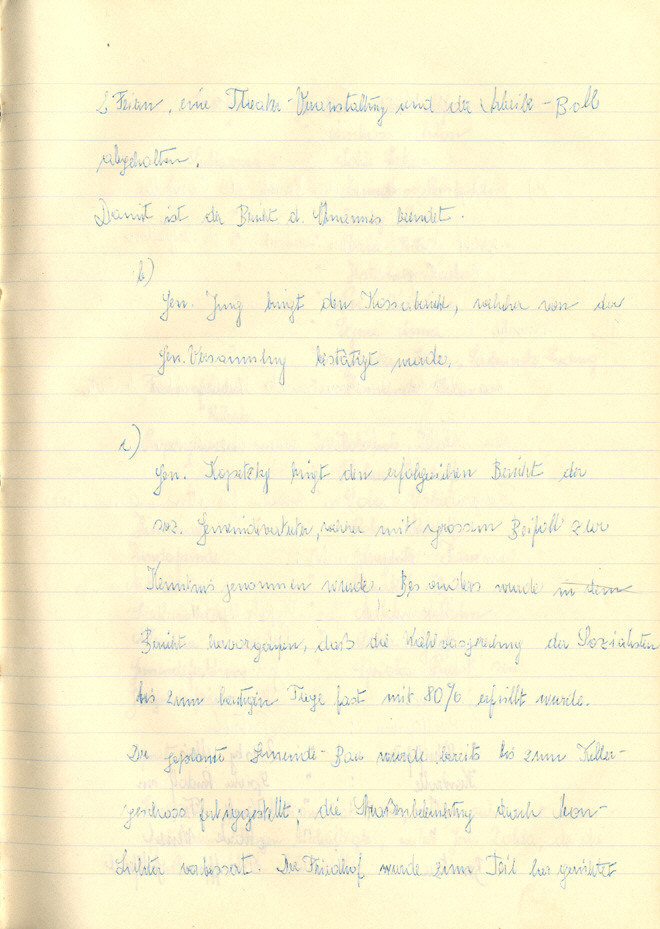 2 Feiern, eine Theater-Veranstaltung und der Arbeiter-Ball
abgehalten.
Damit ist der Bericht d. Obmannes beendet.
b)
Gen. Jung bringt den Kassabericht, welcher von der
Gen. Versammlung bestätigt wurde.
c)
Gen. Kopetzky bringt den erfolgreichen Bericht der
soz. Gemeindevertreter, welcher mit grossem Beifall zur
Kenntnis genommen wurde. Besonders wurde in dem
Bericht hervorgehoben, daß die Wahlversprechung der Sozialisten
bis zum heutigen Tage fast mit 80% erfüllt wurde.
Der geplante Gemeinde-Bau wurde bereits bis zum Keller-
geschoss fertiggestellt; die Straßenbeleuchtung durch Neon-
Lichter verbessert. Der Friedhof wurde zum Teil hergerichtet